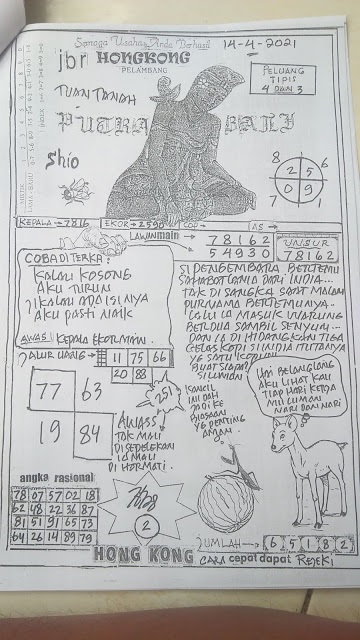 Semoga Usaha Anda Berhasil
14-4-2021
jbr HONGKONG
PELAMBANG
TUAN TANAH
PUTRA BALI
shio
PELUANG
TIPIS
4 DAN 3
8 1 6
2 5
0 9
7
KEPALA = 7816
EKOR = 2590
COP =
AS =
LAWAN main
7 8 1 6 2
5 4 9 3 0
UNSUR
7 8 1 6 2
COBA DI TERKA:
KALAU KOSONG
AKU TURUN
JIKALAU ADA ISI NYA
AKU PASTI NAIK
AWAS! KEPALA EKOR MAIN.
SI PENGEMBARA BERTEMU
SAHABAT LAMA DARI INDIA...
TAK DI SANGKA SAAT MALAM
PURNAMA BERTEMUNYA..
LALU IA MASUK WARUNG
BERDUA SAMBIL SENYUM...
DAN IA DI HIDANGKAN TIGA
GELAS KOPI SI INDIA
YG SATU
BUAT SIAPA
SILUMAN
JALUR UANG =
11 75 66
20 88
77 63
19 84
251
KANCIL
INI DAH
JADI KE
BIASAAN
YG PENTING
AMAN.
AWASS
TAK MAU
DI SEPELEKAN
IA MAU
DI HORMATI.
HAI BELANG LANG
AKU LIHAT KAU
TIAP HARI KERJA
MU LUMAN
NARI DAN NARI
angka rasional:
78 07 57 02 18
62 48 22 36 87
81 51 91 65 73
64 26 14 89 79
2
JUMLAH
6 5 1 8 2
HONG KONG
CARA cepat dapat REJEKI